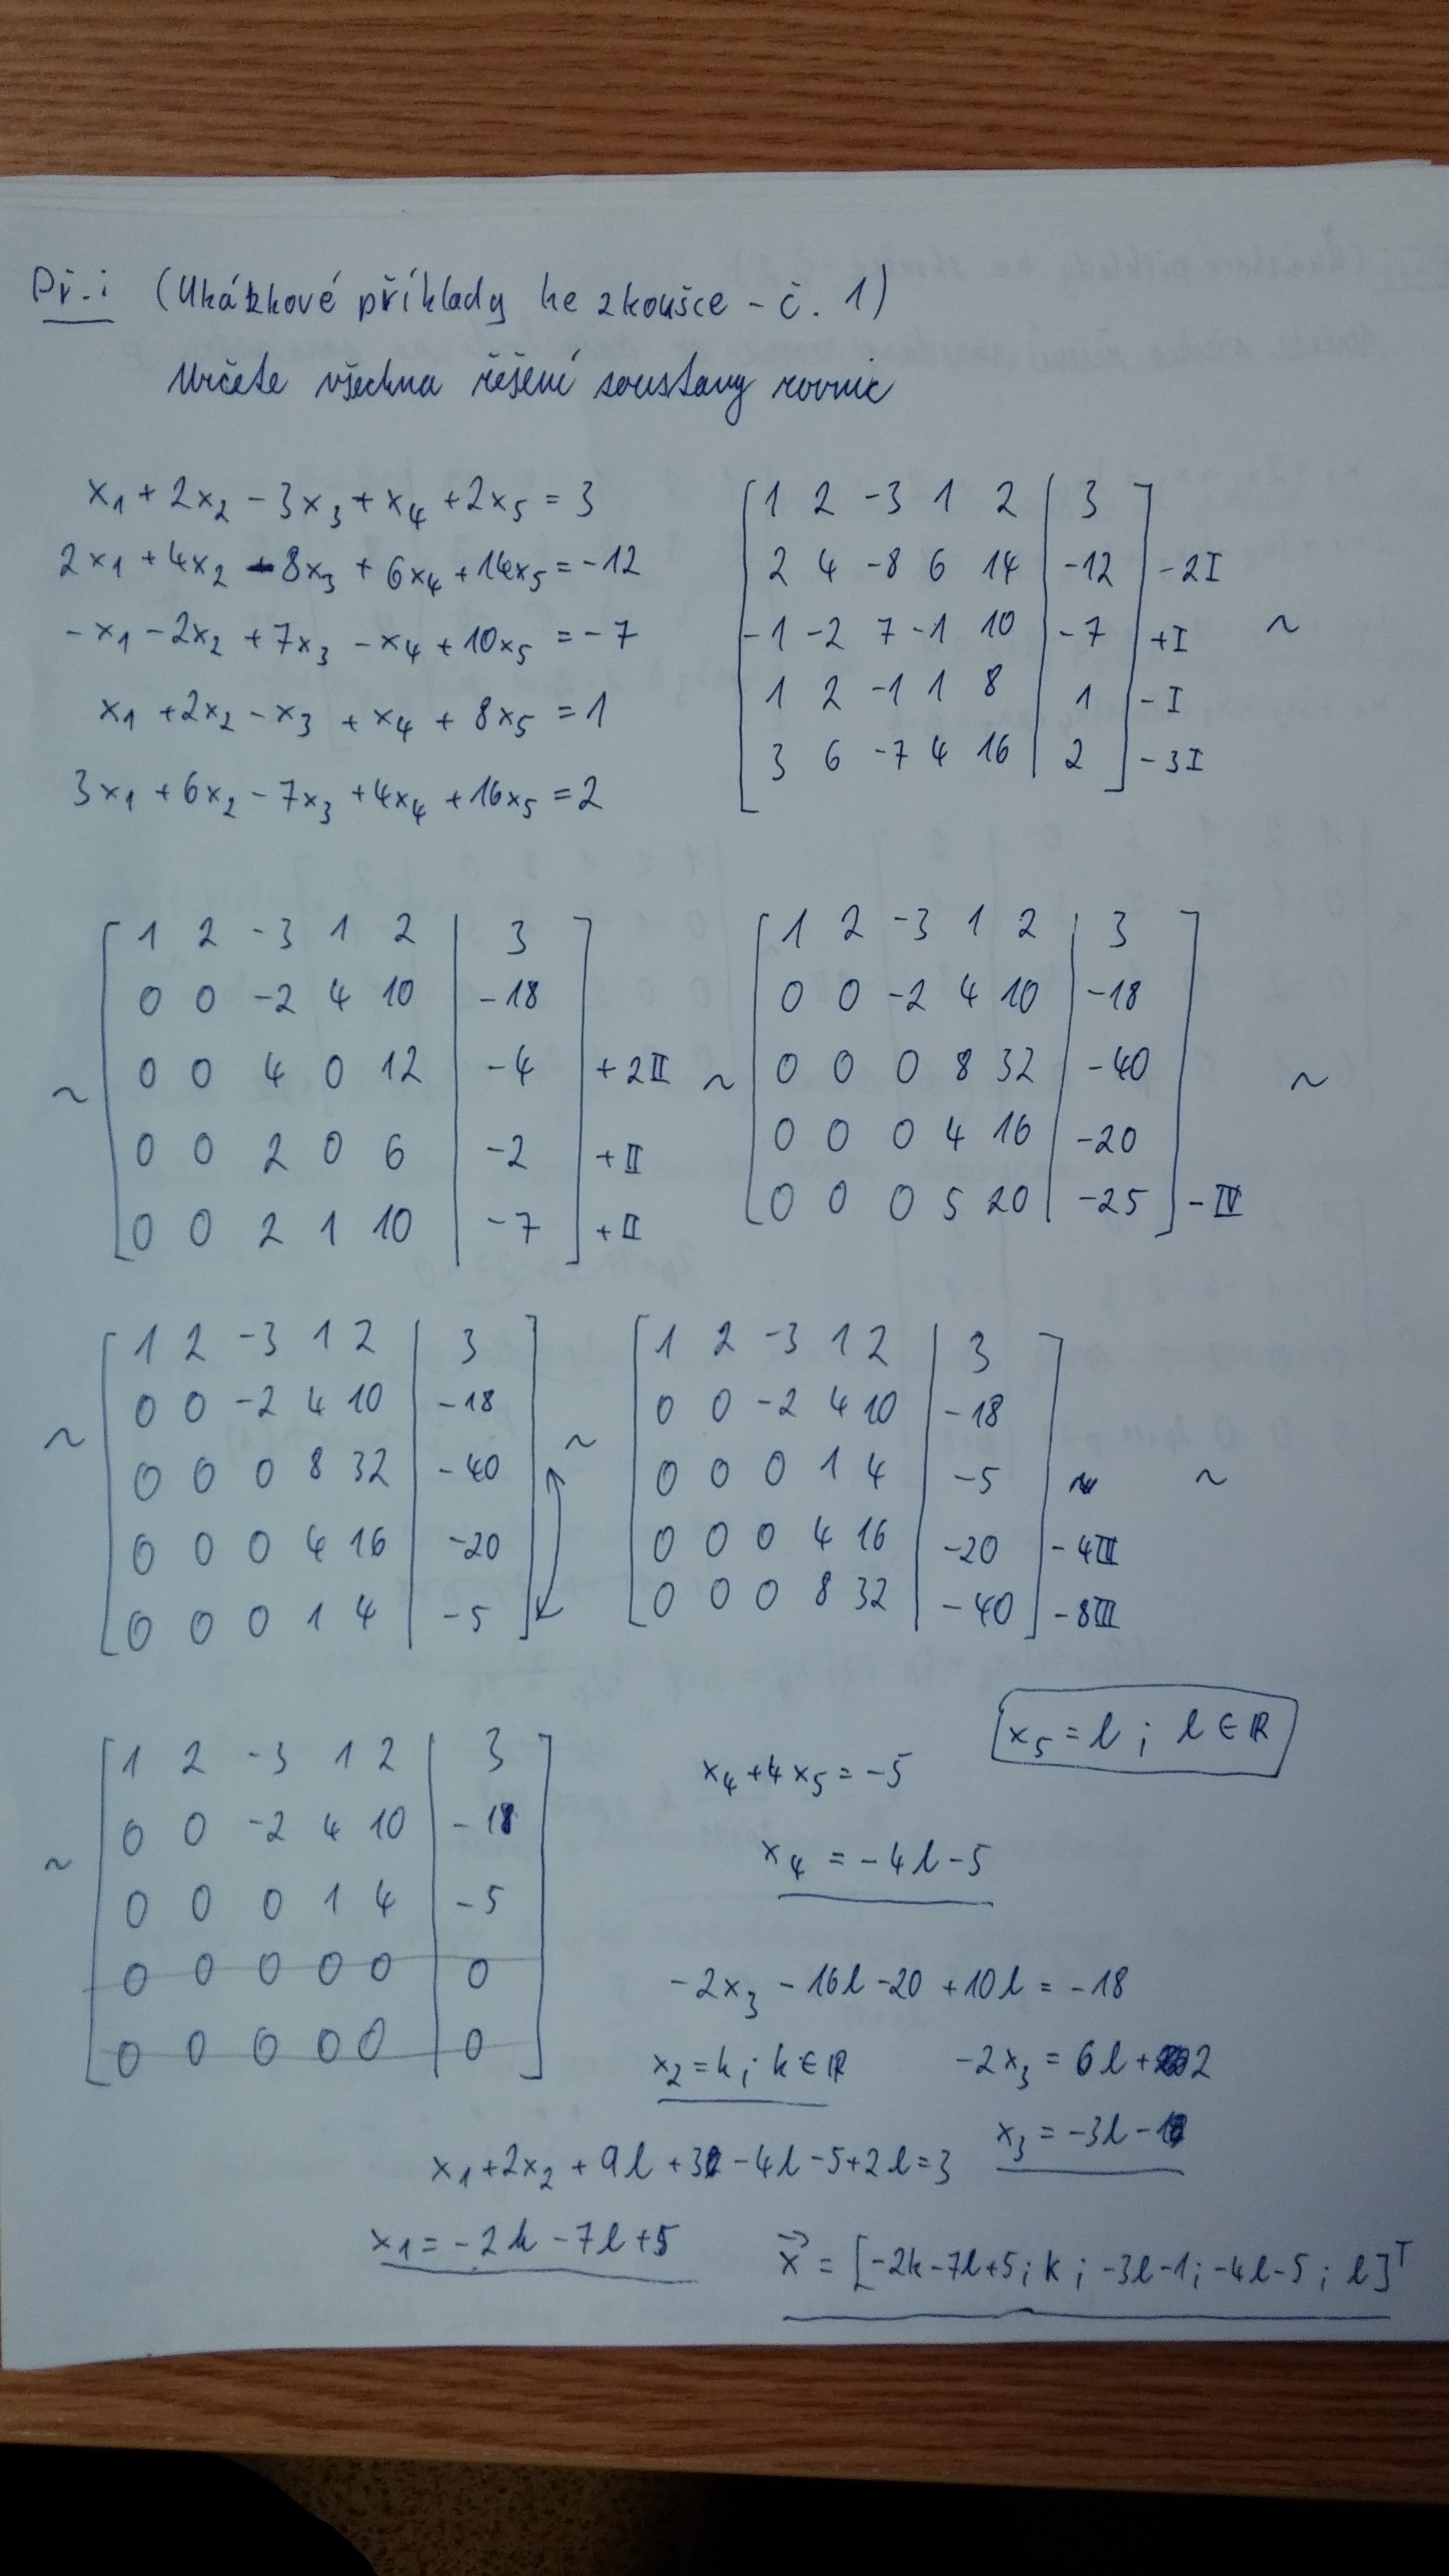 Př.: (Ukázkové příklady ke zkoušce - č. 1)
Určete všechna řešení soustavy rovnic
x₁ + 2x₂ - 3x₃ + x₄ + 2x₅ = 3
2x₁ + 4x₂ - 8x₃ + 6x₄ + 14x₅ = -12
-x₁ - 2x₂ + 7x₃ - x₄ + 10x₅ = -7
x₁ + 2x₂ - x₃ + x₄ + 8x₅ = 1
3x₁ + 6x₂ - 7x₃ + 4x₄ + 16x₅ = 2
1 2 -3 1 2 | 3
2 4 -8 6 14 | -12 -2I
-1 -2 7 -1 10 | -7 +I ~
1 2 -1 1 8 | 1 -I
3 6 -7 4 16 | 2 -3I
1 2 -3 1 2 | 3
0 0 -2 4 10 | -18
~ 0 0 4 0 12 | -4 +2II
0 0 2 0 6 | -2 +II
0 0 2 1 10 | -7 +II
1 2 -3 1 2 | 3
0 0 -2 4 10 | -18
~ 0 0 0 8 32 | -40 ~
0 0 0 4 16 | -20
0 0 0 5 20 | -25 -IV
1 2 -3 1 2 | 3
~ 0 0 -2 4 10 | -18
0 0 0 8 32 | -40
0 0 0 4 16 | -20
0 0 0 1 4 | -5
1 2 -3 1 2 | 3
~ 0 0 -2 4 10 | -18
0 0 0 1 4 | -5 ~
0 0 0 4 16 | -20 -4III
0 0 0 8 32 | -40 -8III
1 2 -3 1 2 | 3
0 0 -2 4 10 | -18
~ 0 0 0 1 4 | -5
0 0 0 0 0 | 0
0 0 0 0 0 | 0
x₅ = l ; l ∈ ℝ
x₄ + 4x₅ = -5
x₄ = -4l - 5
-2x₃ - 16l - 20 + 10l = -18
x₂ = k ; k ∈ ℝ
-2x₃ = 6l + 2
x₃ = -3l - 1
x₁ + 2x₂ + 9l + 3 - 4l - 5 + 2l = 3
x₁ = -2k - 7l + 5
x⃗ = [-2k-7l+5; k; -3l-1; -4l-5; l]ᵀ